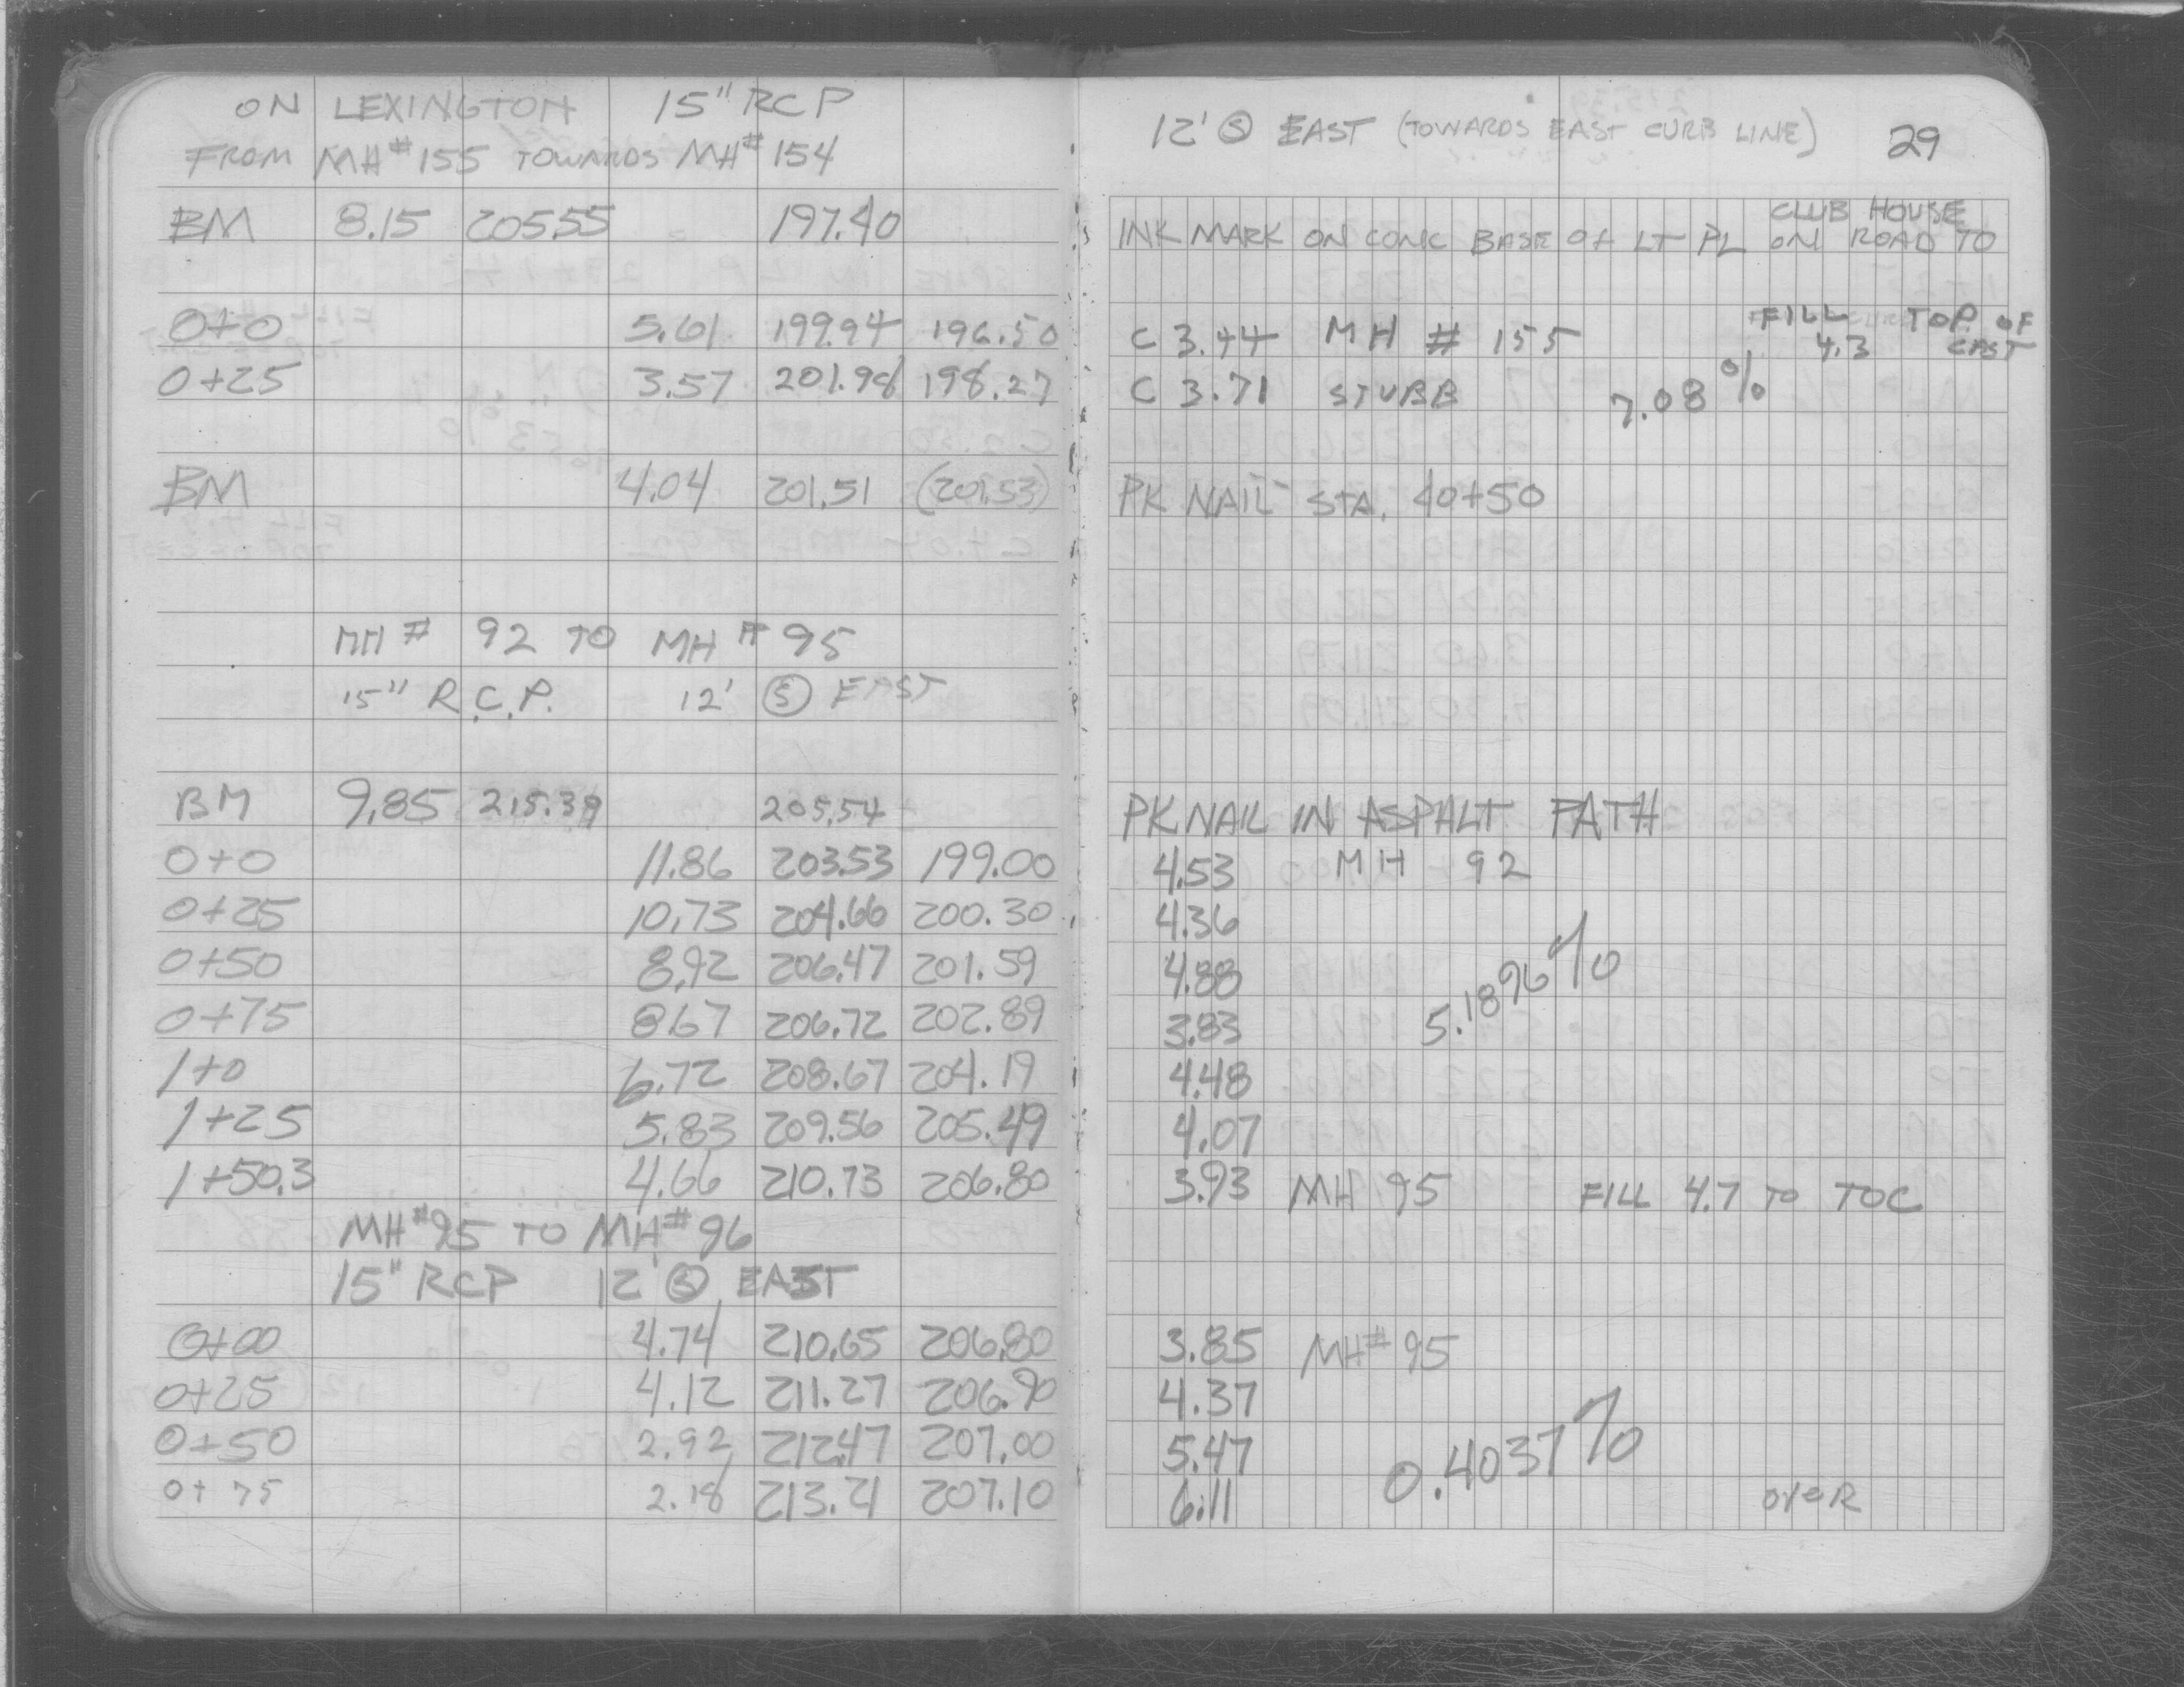 ON LEXINGTON 15" RCP
FROM MH# 155 TOWARDS MH# 154
BM 8.15 205.55 197.40
0+0 5.61 199.94 196.50
0+25 3.57 201.98 198.27
BM 4.04 201.51 (201.53)
MH # 92 TO MH # 95
15" R.C.P. 12' Ⓢ EAST
BM 9.85 215.39 205.54
0+0 11.86 203.53 199.00
0+25 10.73 204.66 200.30
0+50 8.92 206.47 201.59
0+75 8.67 206.72 202.89
1+0 6.72 208.67 204.19
1+25 5.83 209.56 205.49
1+50.3 4.66 210.73 206.80
MH#95 TO MH#96
15" RCP 12' Ⓢ EAST
0+00 4.74 210.65 206.80
0+25 4.12 211.27 206.90
0+50 2.92 212.47 207.00
0+75 2.18 213.21 207.10
12' Ⓢ EAST (TOWARDS EAST CURB LINE) 29
CLUB HOUSE
INK MARK ON CONC BASE OF LT PL ON ROAD TO
FILL TOP OF
C 3.44 MH # 155 4.3 CAST
C 3.71 STUBB 7.08%
PK NAIL STA. 40+50
PK NAIL IN ASPHLT PATH
4.53 MH 92
4.36
4.88
5.1896%
3.83
4.48
4.07
3.93 MH 95 FILL 4.7 TO TOC
3.85 MH# 95
4.37
5.47
0.4037%
6.11 OVER